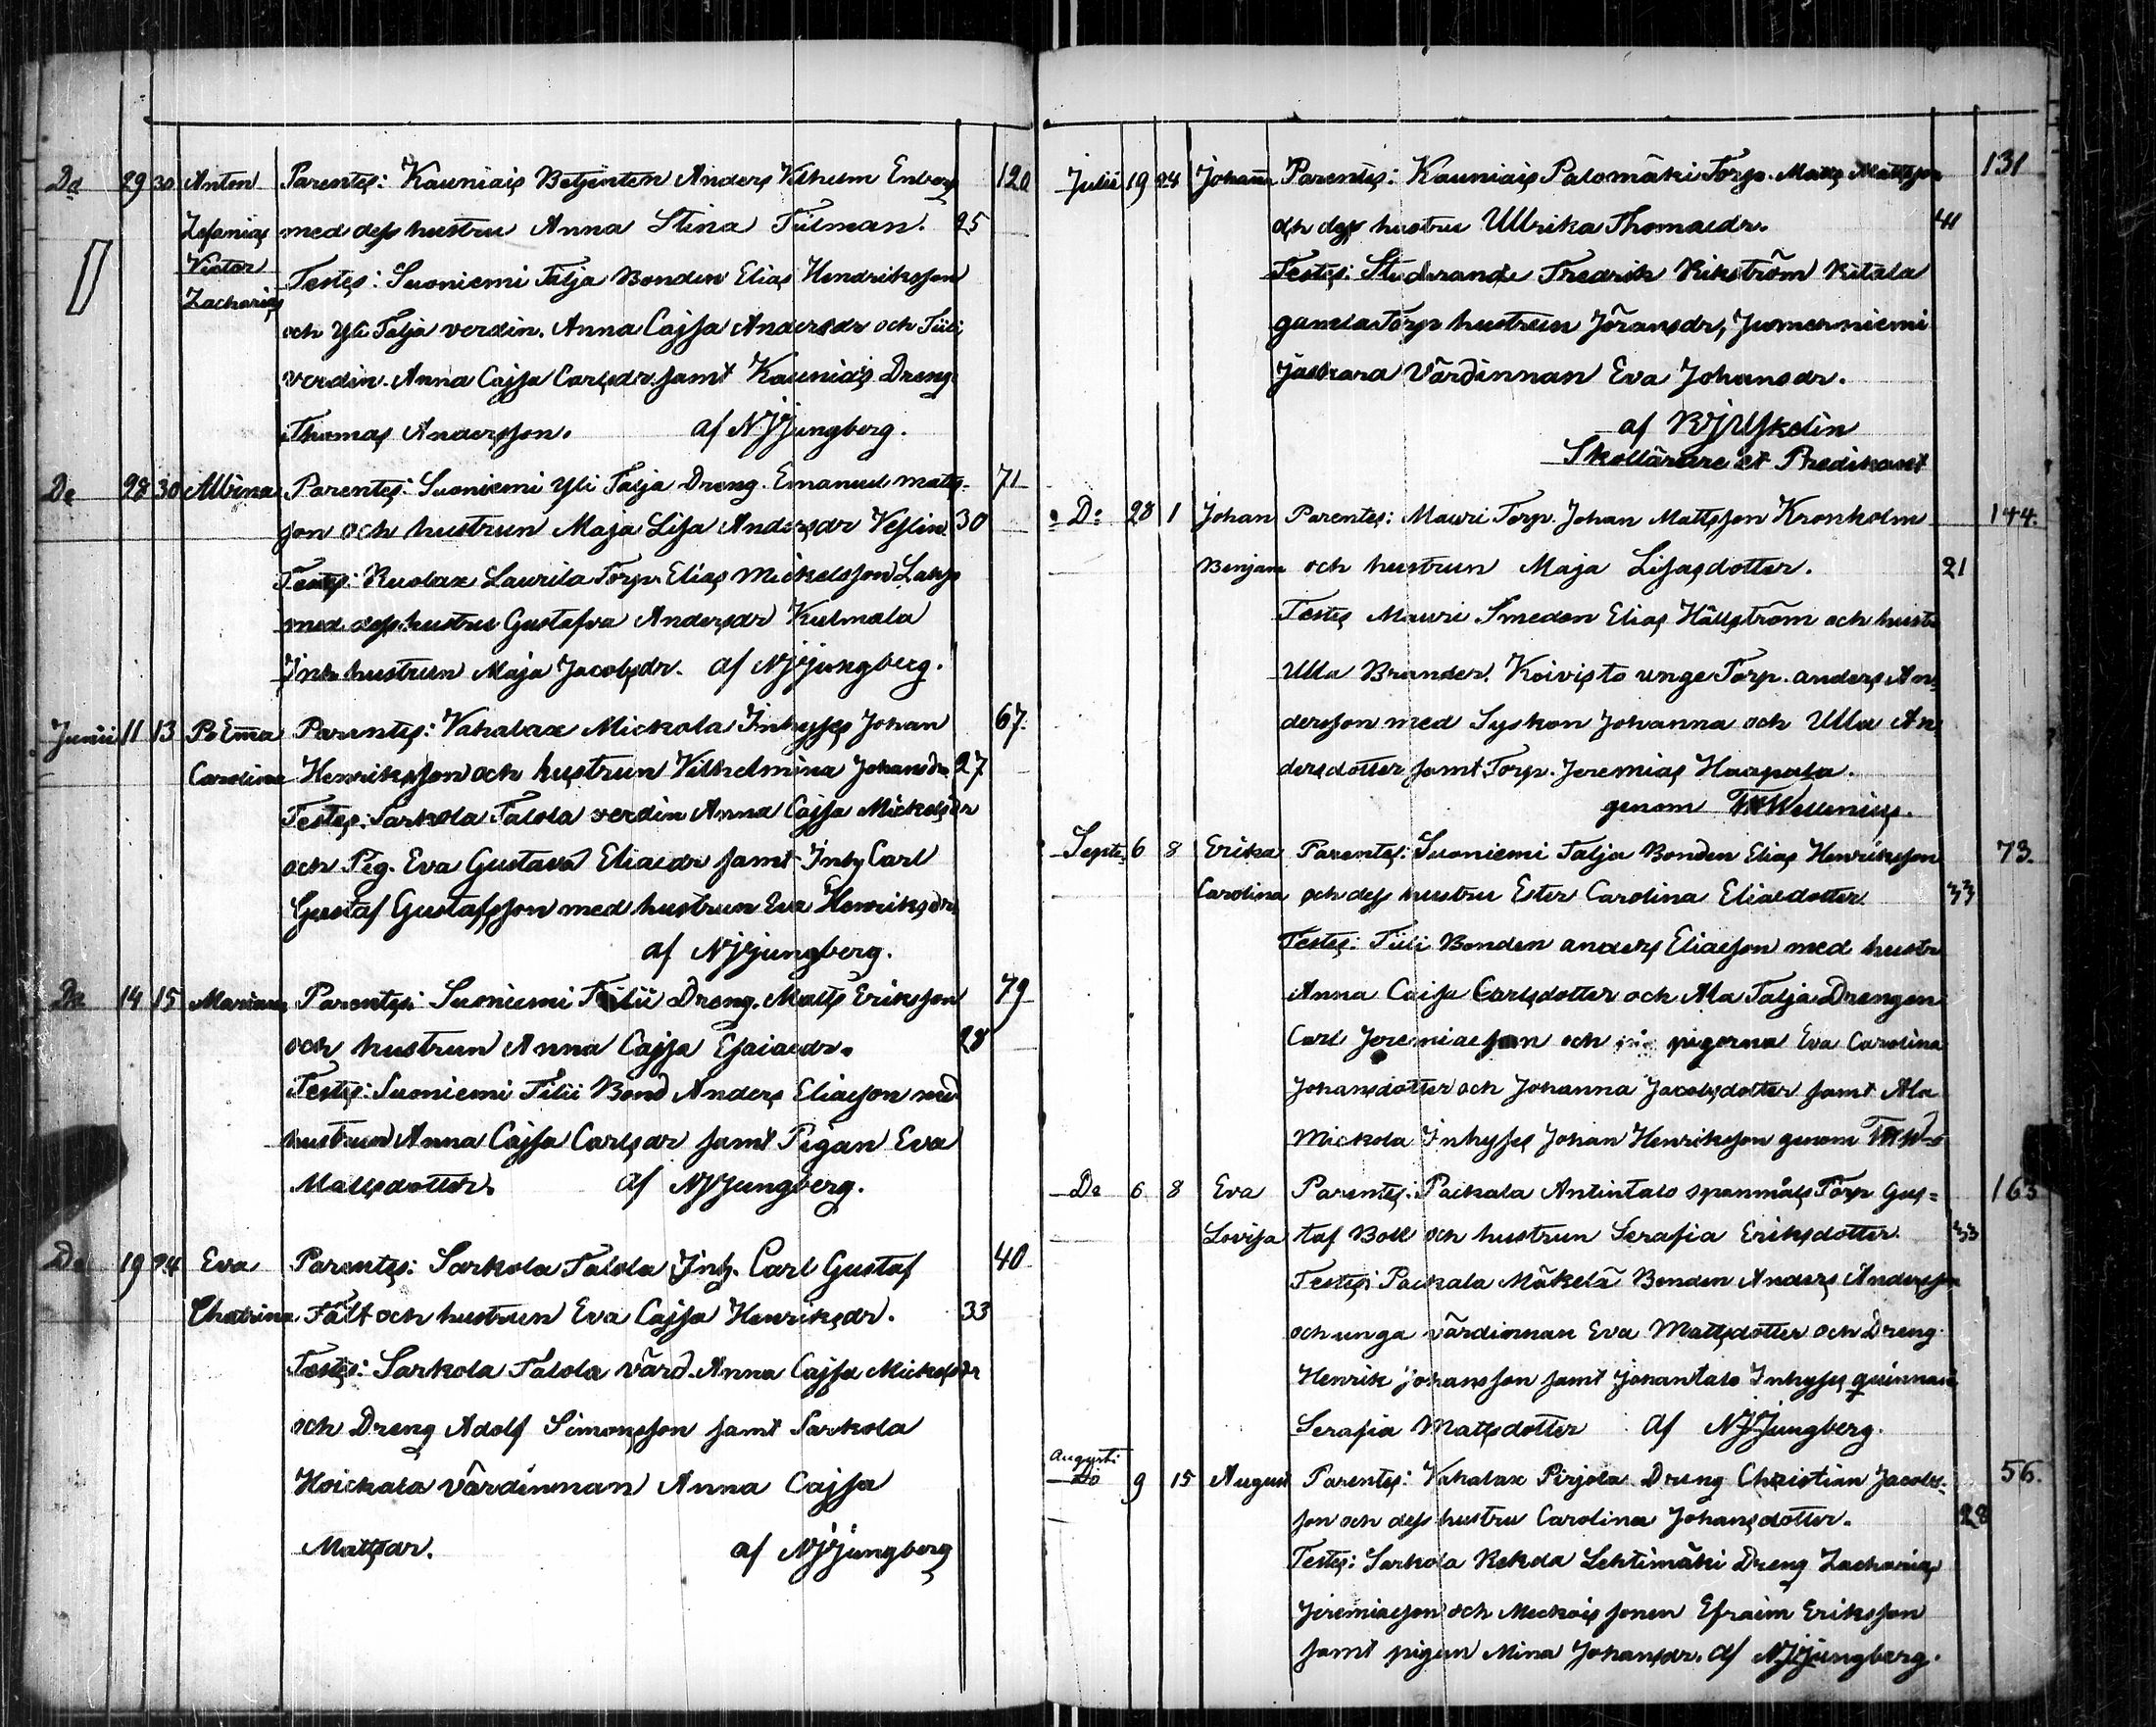 Do 29 30 Anton Parentes: Kauniais Betjenten Anders Vilhelm Enberg 120
Zefanias med dess hustru Anna Stina Tülman. 25
Victor
Zacharias Testes: Suoniemi Talja Bonden Elias Hendriksson
och Yli Talja verdin. Anna Cajsa Andersdr och Tüli
verdin. Anna Cajsa Carlsdr. samt Kauniais Dreng
Thomas Andersson. af NJjungberg.
Do 28 30 Albina Parentes: Suoniemi Yli Talja Dreng. Emanuel mats- 71
son och hustrun Maja Lisa Andersdr Veslin 30
Testes: Ruolax Laurila Torp. Elias Mickelsson
med dess hustru Gustafva Andersdr Kulmala
Inh. hustrun Maja Jacobsdr. af NJjungberg.
Junii 11 13 Emma Parentes: Vahalax Mickola Inhyses Johan 67.
Carolina Henriksson och hustrun Vilhelmina Johansdr 27
Testes: Sarkola Talola verdin Anna Cajsa Mickelsdr
och Pig. Eva Gustava Eliaedr samt Inhy Carl
Gustaf Gustafsson med hustrun Eva Henriksdr.
af NJjungberg.
Do 14 15 Mariana Parentes: Suoniemi Tilii Dreng. Matts Eriksson 79
och hustrun Anna Cajsa Esaiaedr. 28
Testes: Suoniemi Tilii Bond Anders Eliaeson med
hustrun Anna Cajsa Carlsdr samt Pigan Eva
Mattsdotter. af NJjungberg.
Do 19 24 Eva Parentes: Sarkola Talola Inh. Carl Gustaf 40
Chatrina Fält och hustrun Eva Cajsa Henriksdr. 33
Testes: Sarkola Talola värd. Anna Cajsa Mickelsdr
och Dreng Adolf Simonsson samt Sarkola
Hoickala värdinman Anna Cajsa
Mattsdr. af NJjungberg
Julii 19 24 Johanna Parentes: Kauniais Palomäki Torp. Matts Mattsson 131
och dess hustru Ullrika Thomaedr. 41
Testes: Studerande Fredrik Rikström Kitala
gamla Torp hustrun Jöransdr, Jumesniemi
Jaskara Värdinnan Eva Johansdr.
af
Skollärare et Predikant
Do 28 1 Johan Parentes: Mauri Torp. Johan Mattsson Kronholm 144.
Benjam och hustrun Maja Lisasdotter. 21
Testes Mauri Smeden Elias Hällström och hustr
Ulla Brander. Koivisto unge Torp. anders An=
dersson med Syskon Johanna och Ulla An=
dersdotter samt Torp. Jeremias Haapala.
genom Wellenius.
Septe. 6 8 Erika Parentes: Suoniemi Talja Bonden Elias Henriksson 73.
Carolina och dess hustru Ester Carolina Eliaedotter 33
Testes: Tüli Bonden anders Eliaeson med hustr
Anna Caisa Carlsdotter och Ala Talja Drengen
Carl Jeremiaeson och pigorna Eva Carolina
Johansdotter och Johanna Jacobsdotter samt Ala
Mickola Inhyses Johan Henriksson genom
Do 6 8 Eva Parentes: Paikala Antintalo spanmåls Torp Gus= 163
Lovisa taf Boll och hustrun Serafia Eriksdotter 33
Testes: Paikala Mäkelä Bonden Anders Andersson
och unga värdinnan Eva Mattsdotter och Dreng
Henrik Johansson samt Johantalo Inhyses quinnan
Serafia Mattsdotter af NJjungberg.
Augusti
Do 9 15 August Parentes: Vahalax Pirjola Dreng Christian Jacobs- 56.
son och dess hustru Carolina Johansdotter. 28
Testes: Sarkola Rekola Lehtimäki Dreng Zacharias
Jeremiaeson och Meckois sonen Efraim Eriksson
samt pigan Mina Johansdr. af NJjungberg.